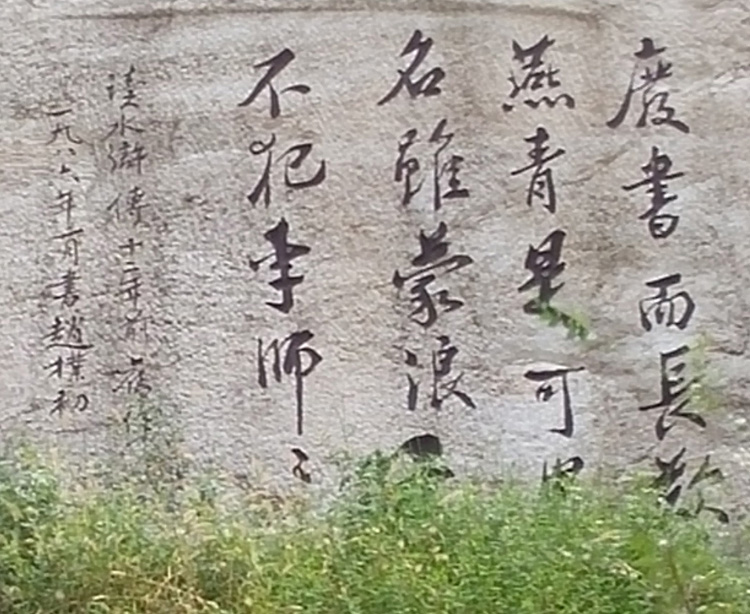 廢書而長歎
燕青是可
名雖蒙浪
不犯李師々
讀水滸傳十二年前作
一九八六年一月書趙樸初